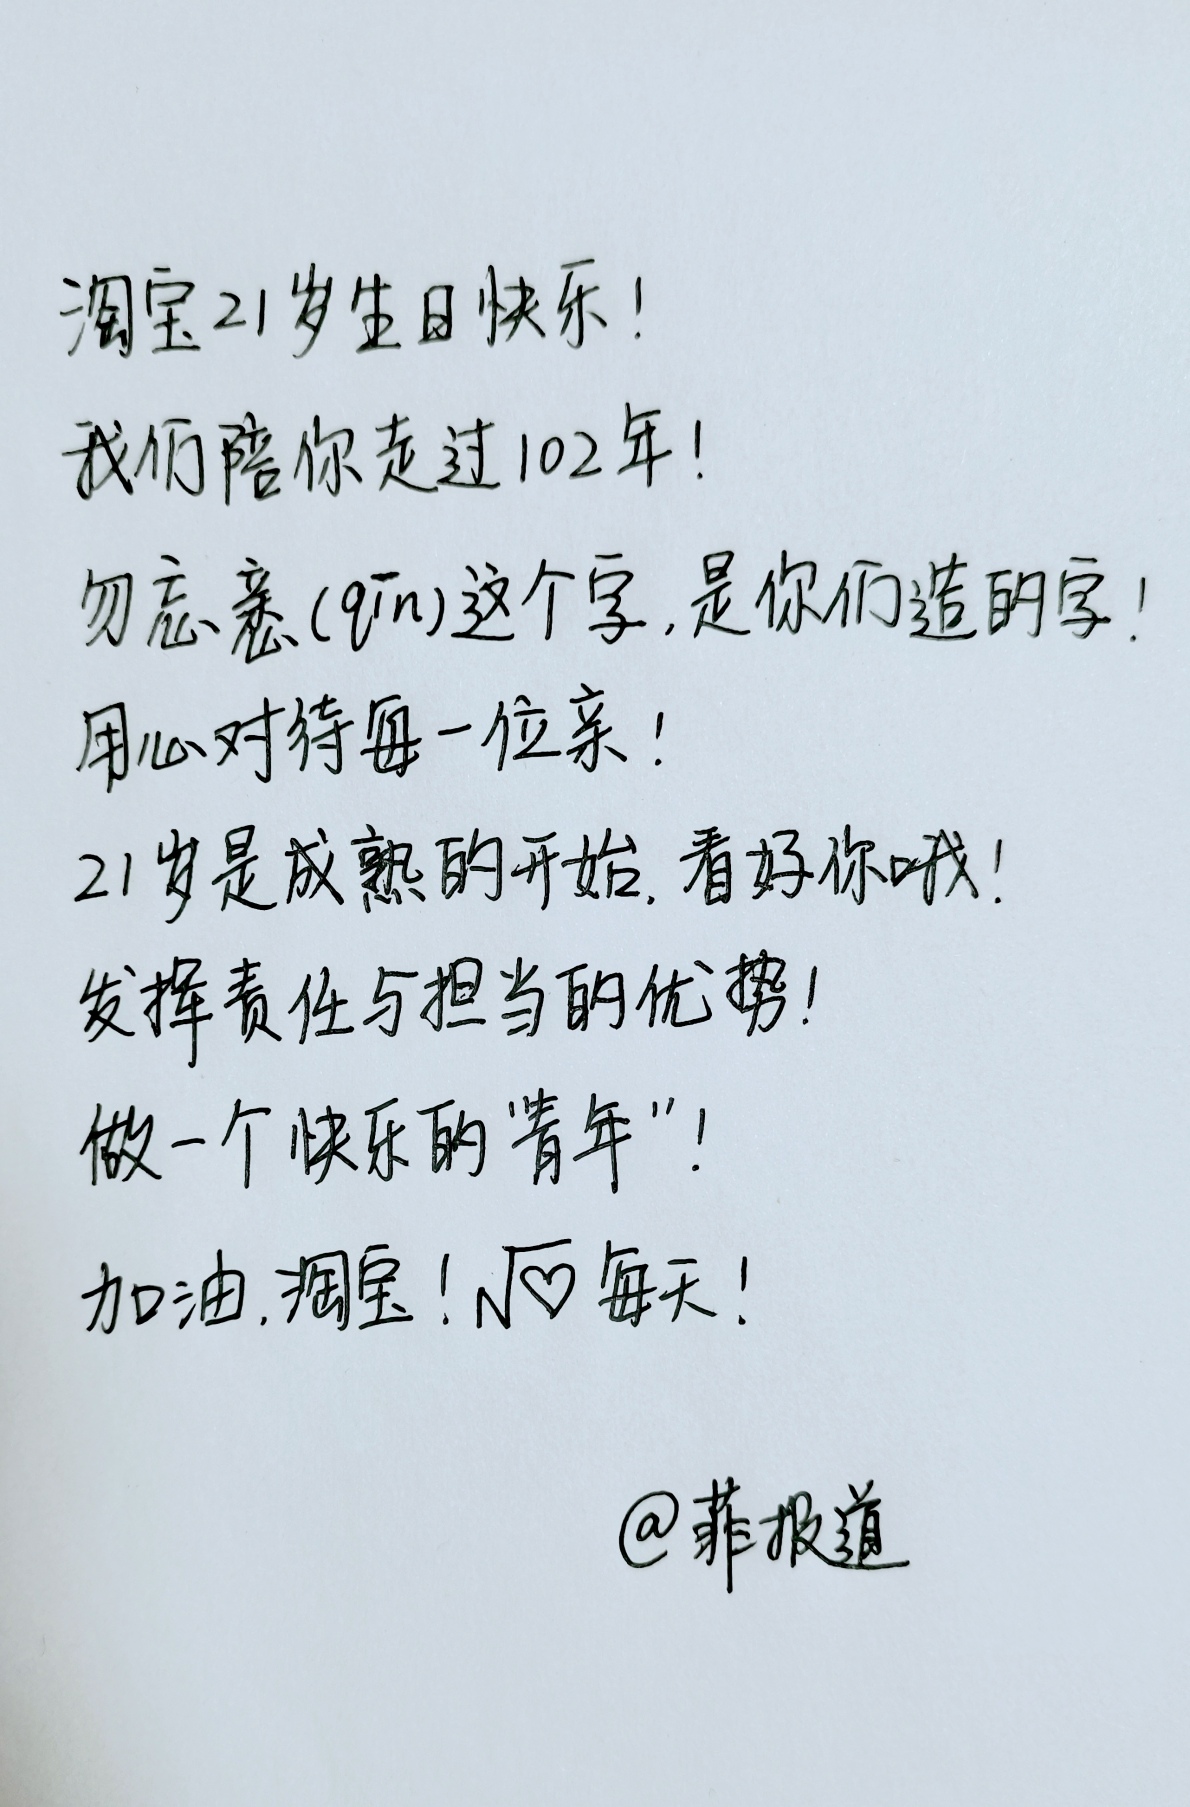 淘宝21岁生日快乐！
我们陪你走过102年！
勿忘𢛎(qīn)这个字，是你们造的字！
用心对待每一位亲！
21岁是成熟的开始，看好你哦！
发挥责任与担当的优势！
做一个快乐的“青年”！
加油，淘宝！√♡每天！
@菲报道